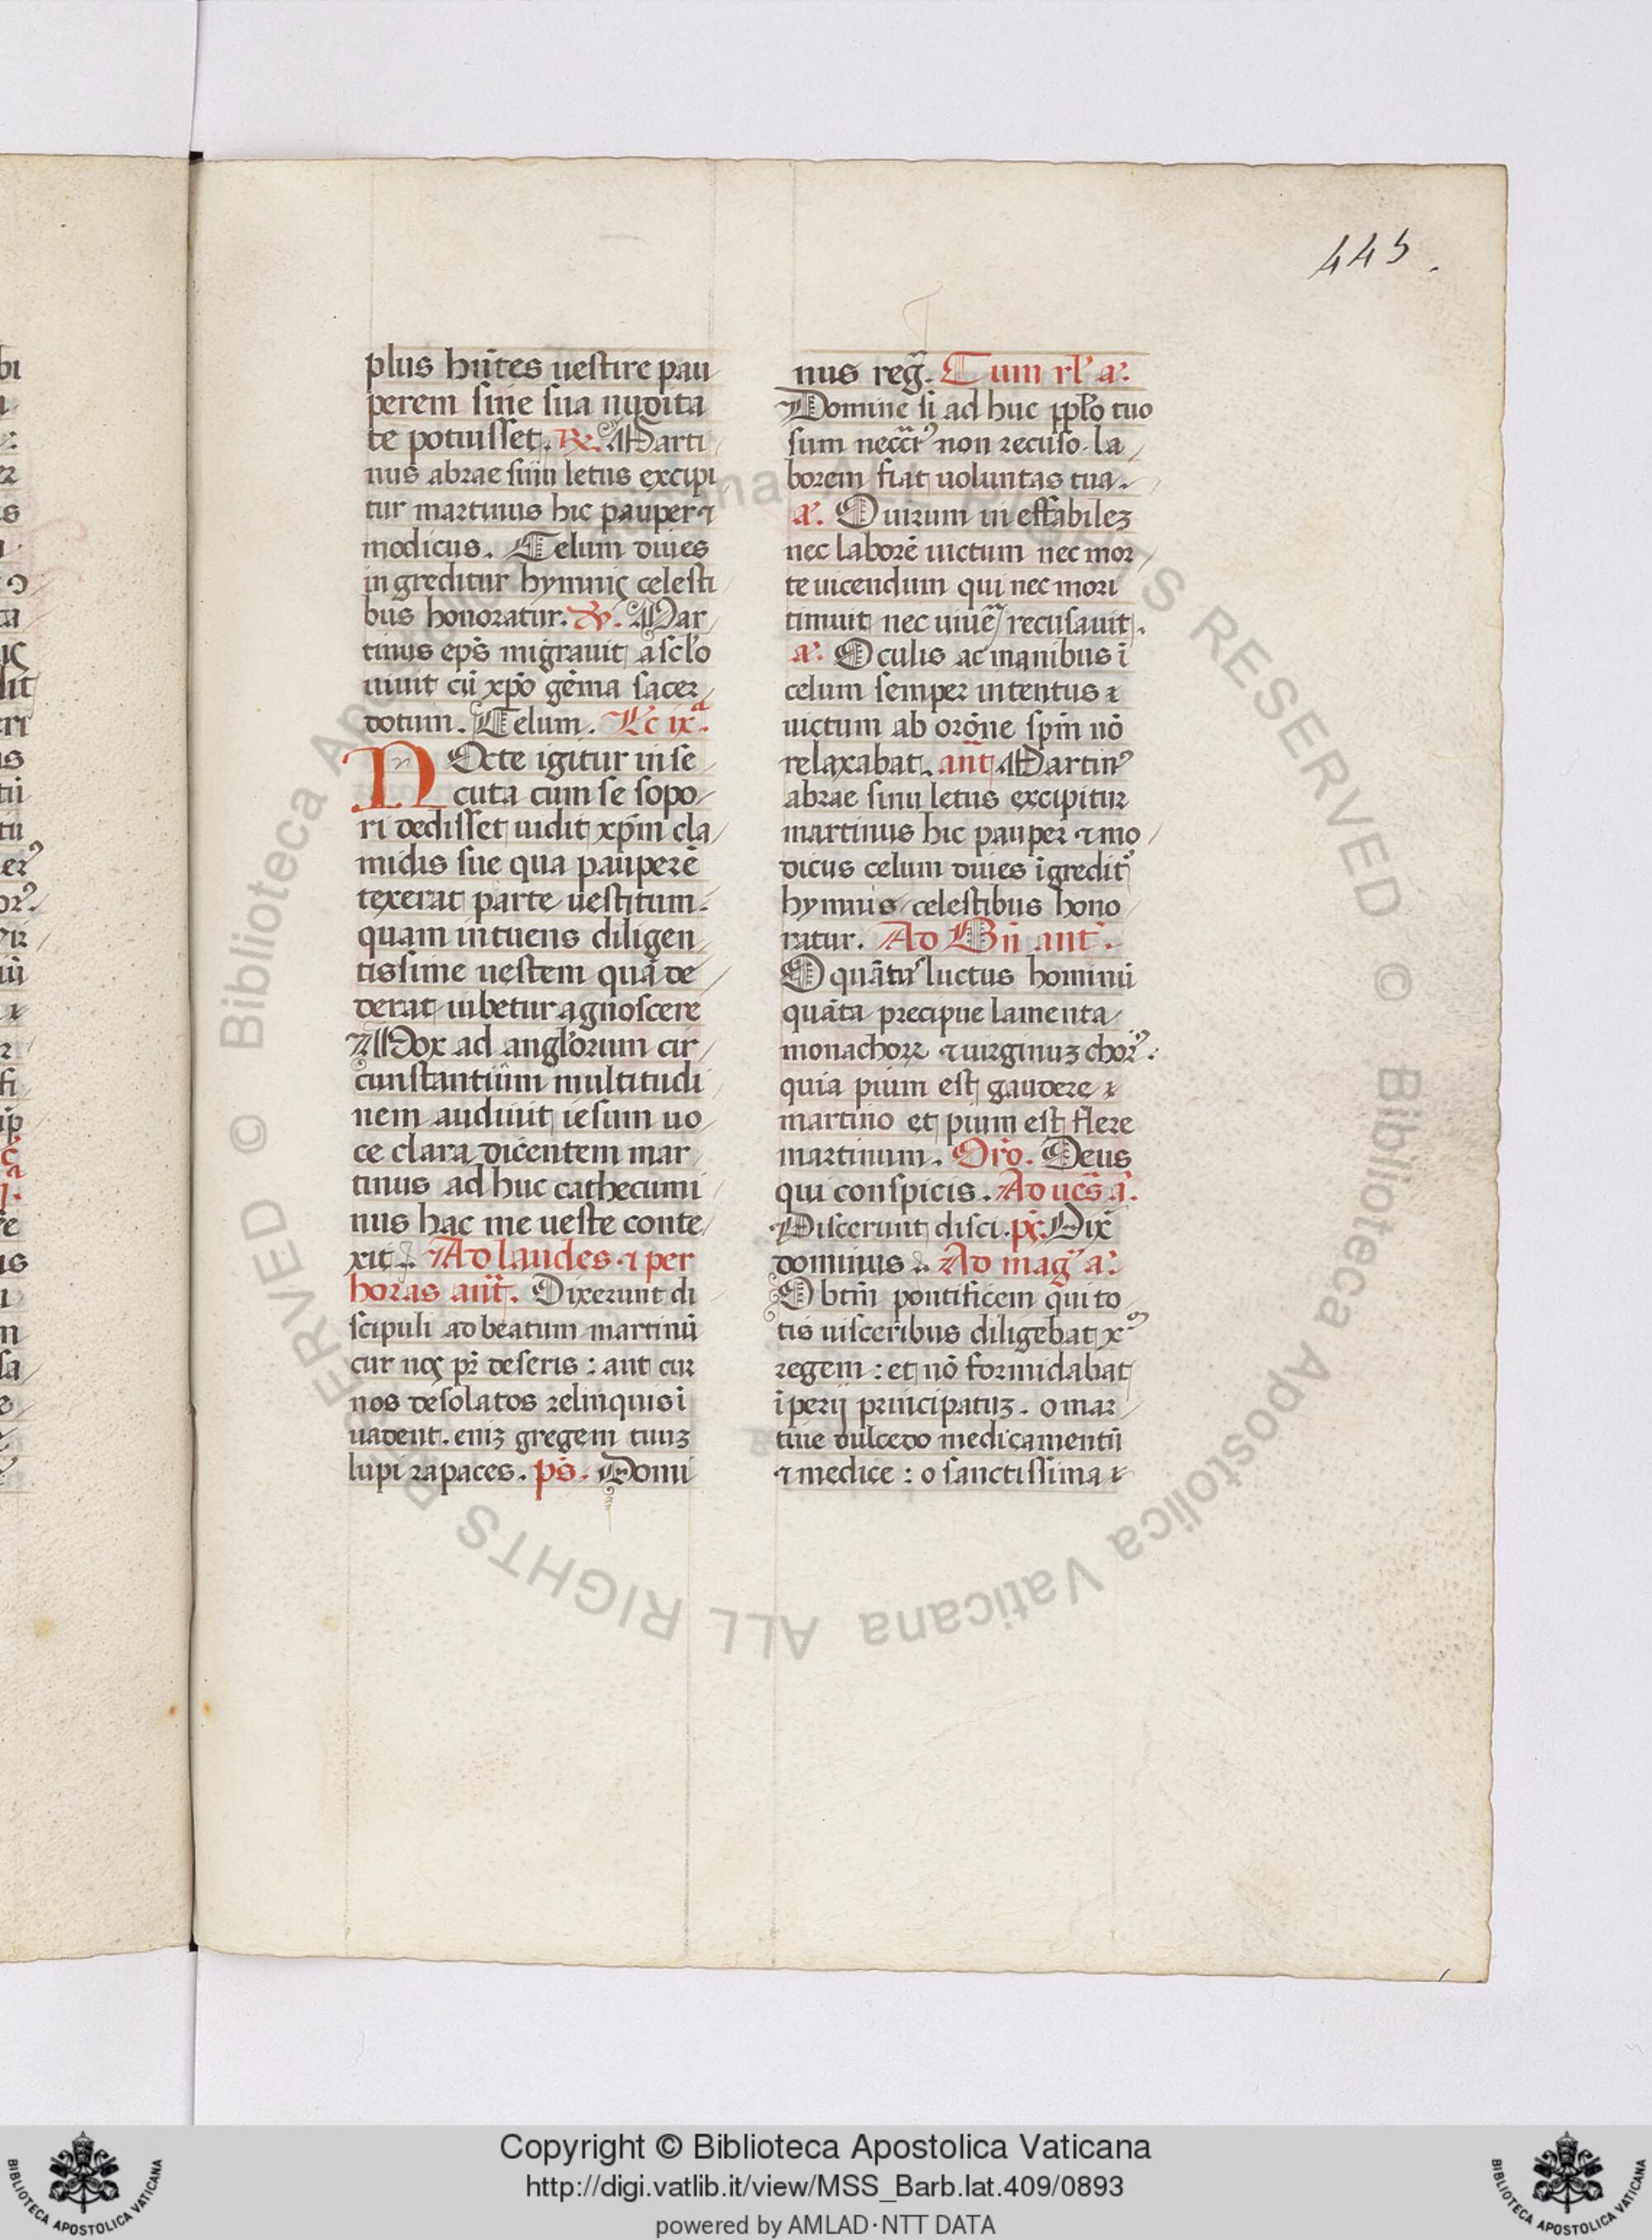 445.
plus hñtes uestire pau
perem sine sua nudita
te potuisset. R. Marti
nus abrae sinu letus excipi
tur martinus hic pauper ⁊
modicus. Celum diues
ingreditur hymnis celesti
bus honoratur. V. Mar
tinus ep̄s migrauit a sclo
uiuit cū xp̄o gēma sacer
dotum. Celum. Lc ixᵃ.
NOcte igitur in se
cuta cum se sopo
ri dedisset uidit xp̄m cla
midis sue qua pauperē
texerat parte uestitum.
quam intuens diligen
tissime uestem quā de
derat iubetur agnoscere
Mox ad anglorum cir
cunstantium multitudi
nem audiuit iesum uo
ce clara dicentem mar
tinus ad huc cathecumi
nus hac me ueste conte
xit. Ad laudes ⁊ per
horas ant̄. Dixerunt di
scipuli ad beatum martinū
cur nos pr̄ deseris: aut cur
nos desolatos relinquis ī
uadent. enіꝫ gregem tuuꝫ
lupi rapaces. ps̄. Domi
nus reḡ. Cum rl' a.
Domine si ad huc pplo tuo
sum necc̄r' non recuso la
borem fiat uoluntas tua.
a. O uirum in effabileꝫ
nec laborē uictum nec mor
te uicendum qui nec mori
timuit nec uiuē recusauit.
a. Oculis ac manibus ī
celum semper intentus ⁊
uictum ab orōne sp̄m nō
relaxabat. ant̄ Martin'
abrae sinu letus excipitur
martinus hic pauper ⁊ mo
dicus celum diues īgredit'
hymnis celestibus hono
ratur. Ad Bn̄ ant̄.
O quātus luctus hominū
quāta precipue lamenta
monachorꝝ ⁊ uirginuꝫ chor'.
quia pium est gaudere ⁊
martino et pium est flere
martinum. Orō. Deus
qui conspicis. Ad ues̄ a.
Discerunt disci. ps̄. Dix̄
dominus. Ad mag a.
O btm̄ pontificem qui to
tis uisceribus diligebat x
regem: et nō formidabat
īperij principatuꝫ. o mar
tine dulcedo medicamentū
⁊ medice: o sanctissima ⁊
© Biblioteca Apostolica Vaticana ALL RIGHTS RESERVED © Biblioteca Apostolica Vaticana ALL RIGHTS RESERVED
BIBLIOTECA APOSTOLICA VATICANA
Copyright © Biblioteca Apostolica Vaticana
http://digi.vatlib.it/view/MSS_Barb.lat.409/0893
powered by AMLAD·NTT DATA
BIBLIOTECA APOSTOLICA VATICANA